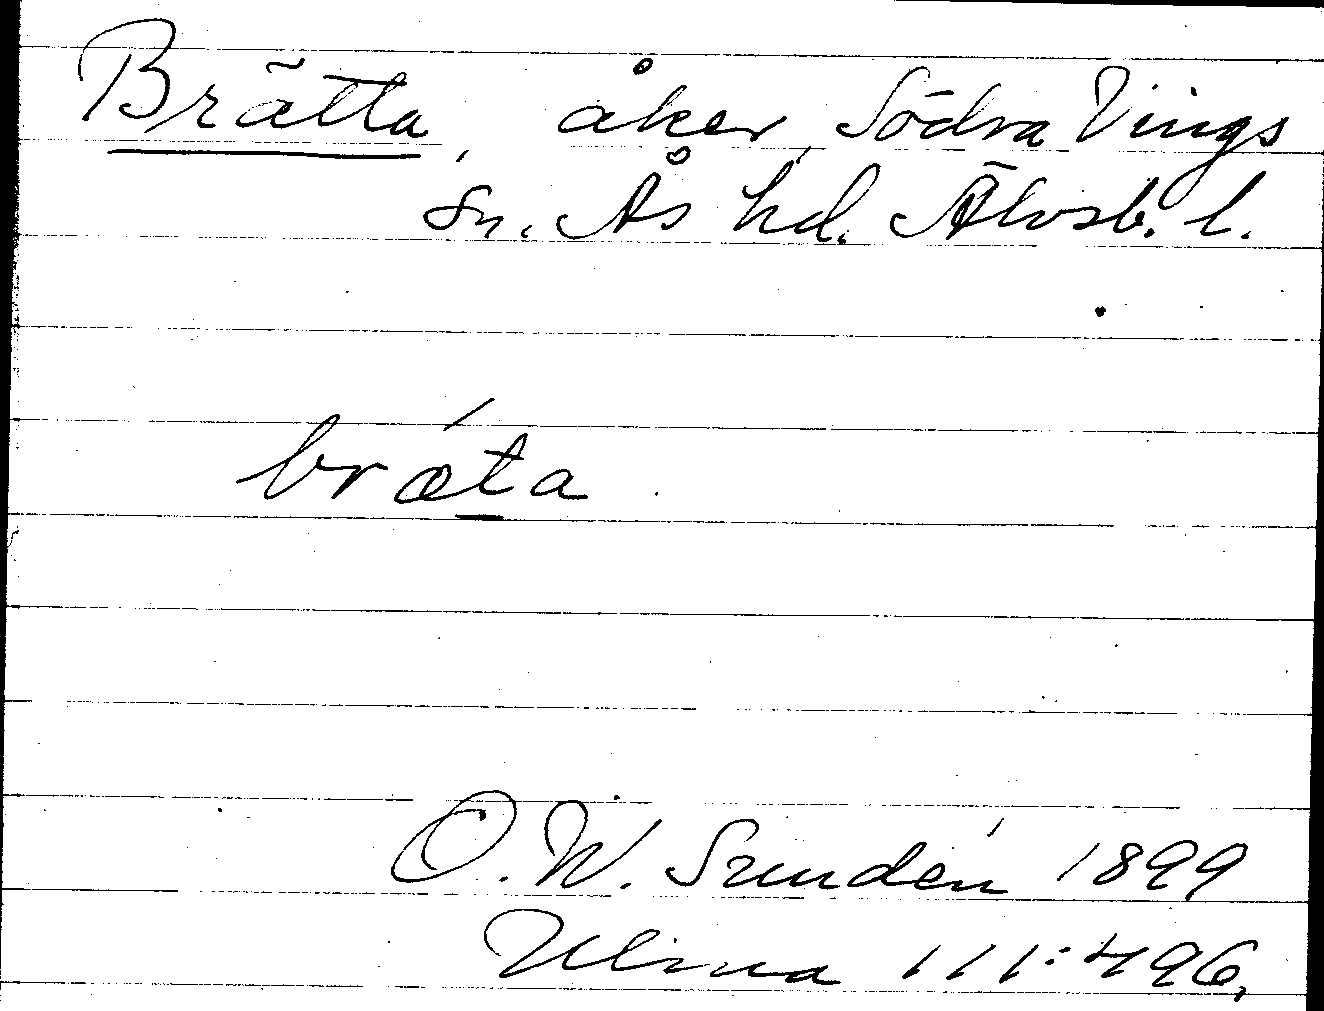 Brätta, åker, Södra Vings
sn. Ås hd. Älvsb. l.
brǽta
O. W. Sundén 1899
Ulma 111:496,